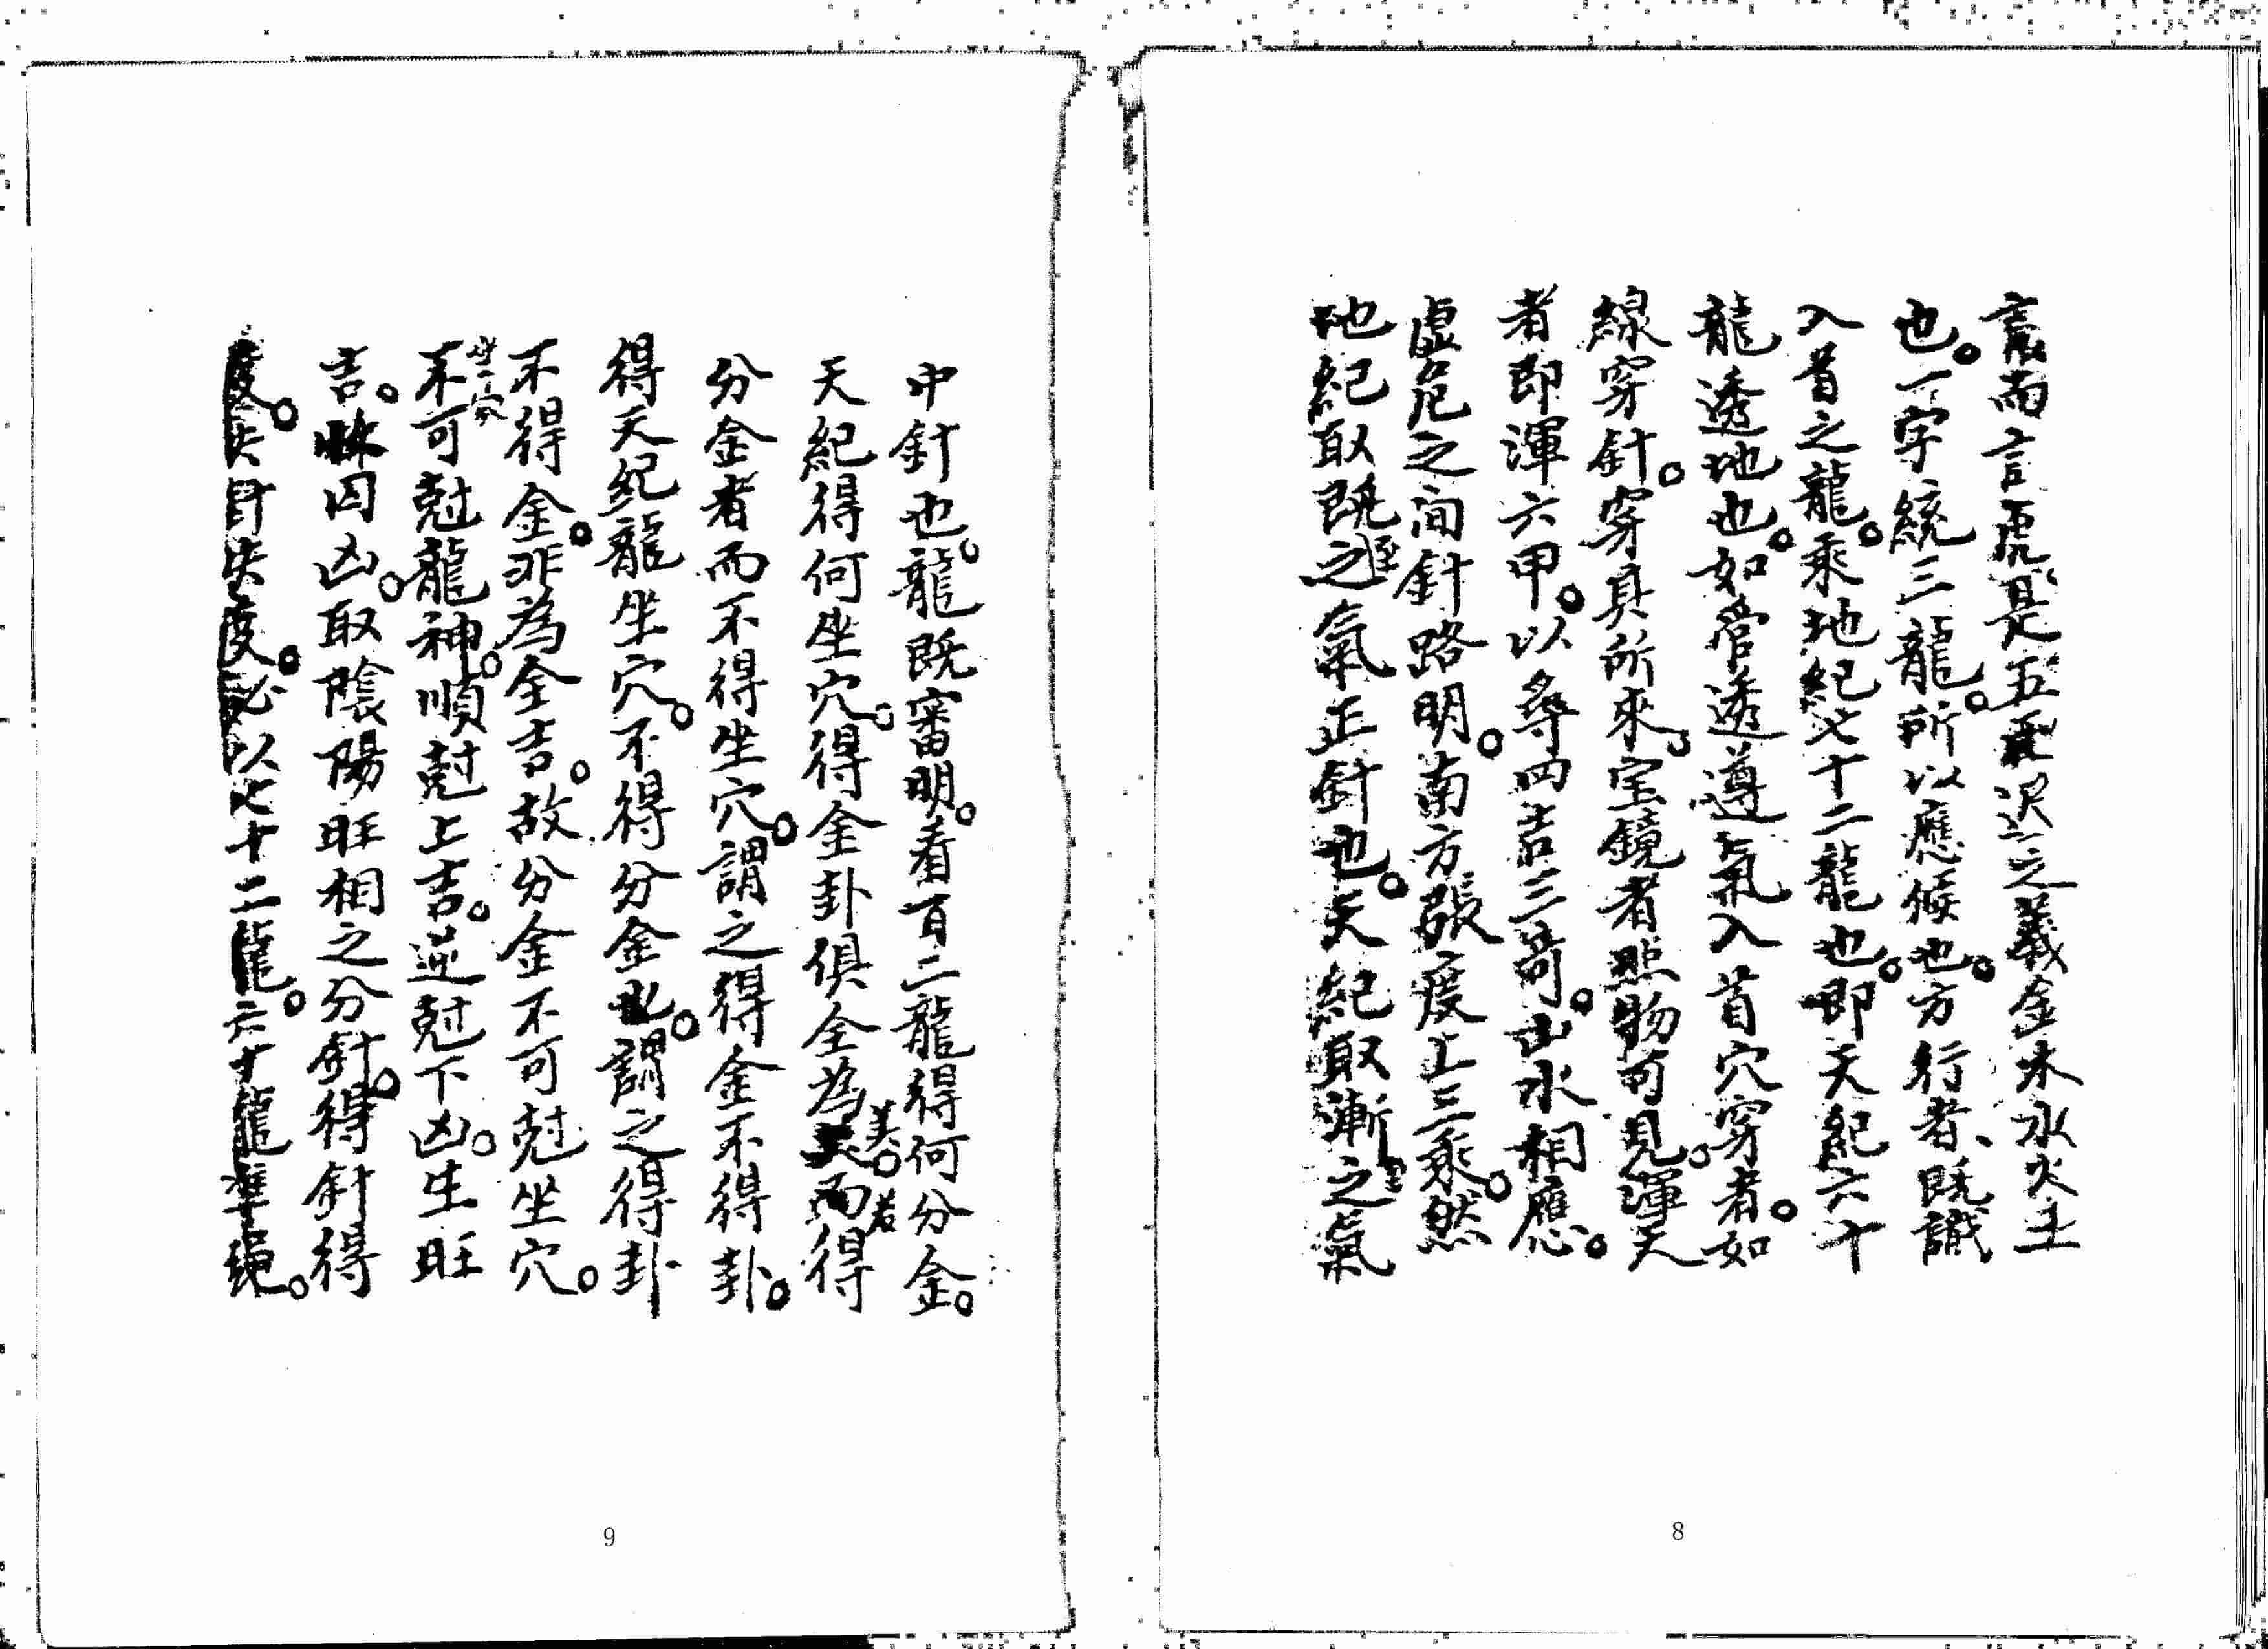 言而言虎是五氣沢之義金木水火土
也。一字統三龍。所以應候也。方行者、既識
入首之龍。乘地紀七十二龍也。即天紀六十
龍透地也。如管透遵氣入首穴穿者。如
線穿針。穿其所來。宝鏡者照物可見。渾天
者即渾六甲。以尋四吉三奇。山水相應。
虛危之间針路明。南方張度上三乘。然
地紀取既之氣正針也。天紀取漸之氣
8
中針也。龍既審明。看百二龍得何分金。
天紀得何坐穴。得金卦俱全為美。若得
分金者而不得坐穴。謂之得金不得卦。
得天紀龍坐穴。不得分金也。謂之得卦
不得金。非為全吉。故分金不可尅坐穴。
不可尅龍神。順尅上吉。逆尅下凶。生旺
吉。休囚凶。取陰陽旺相之分針。得針得
度。失針失度。必以七十二龍。六十龍準繩。
9